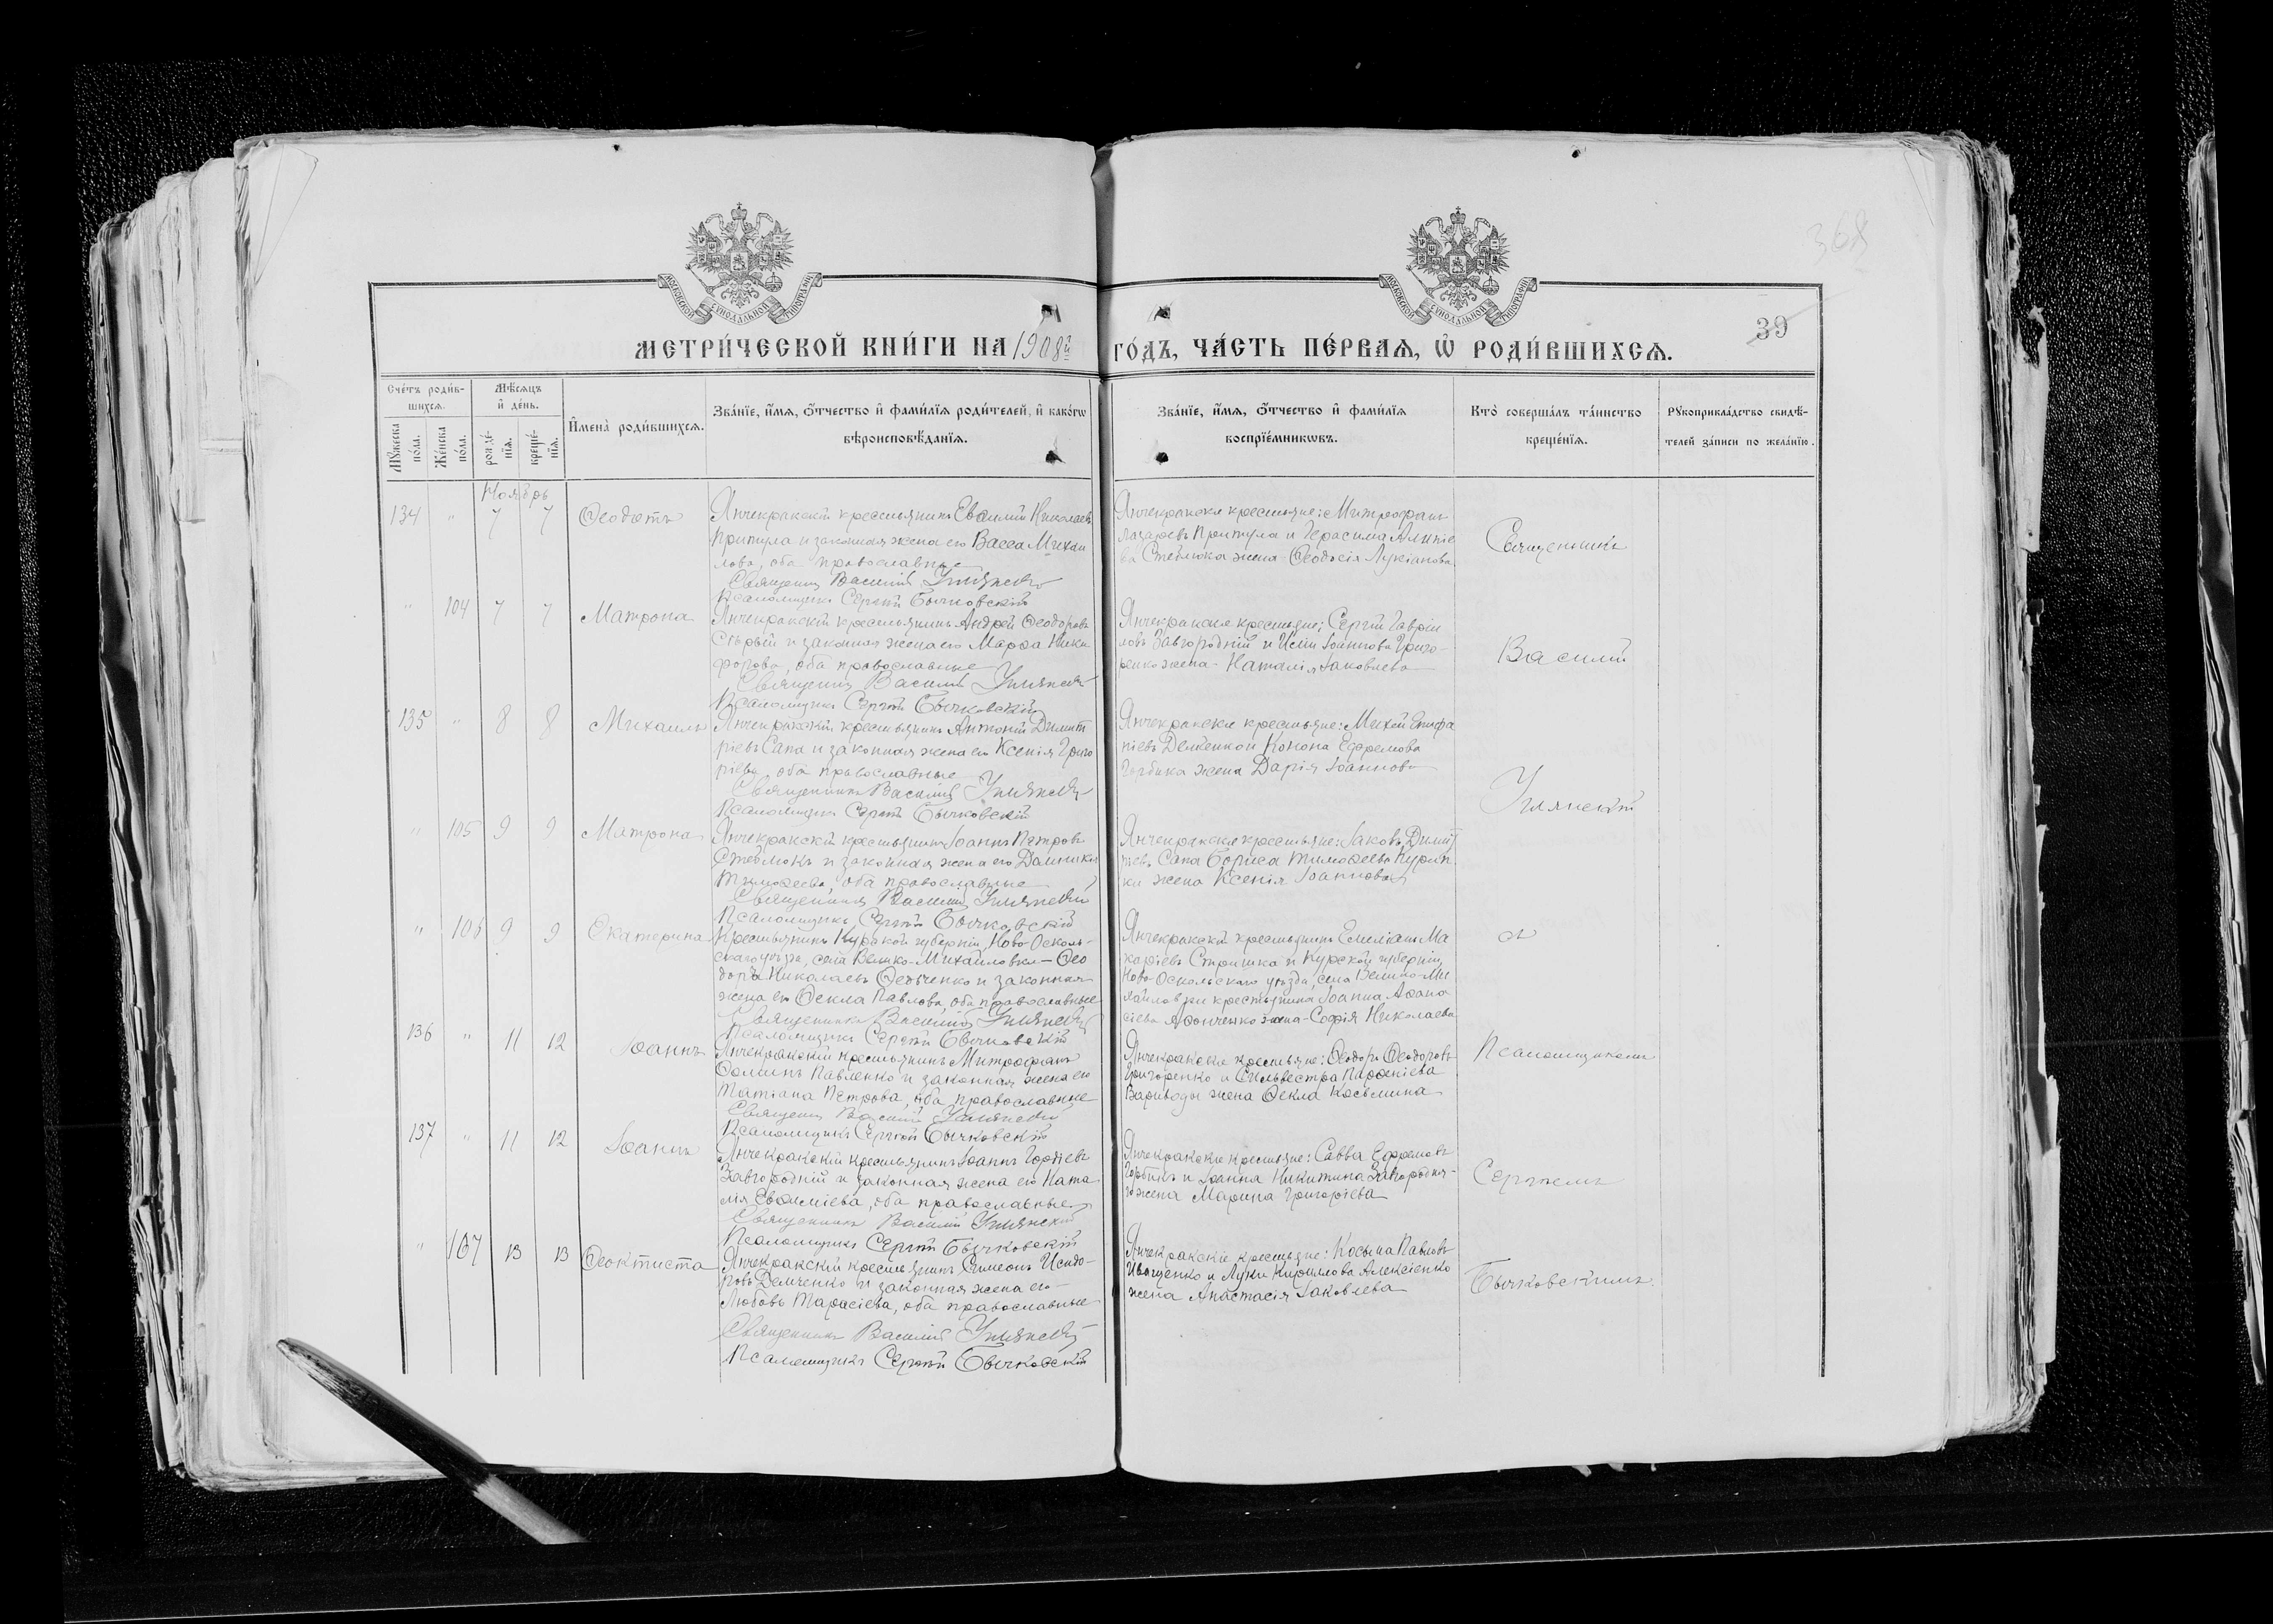 368
39
МОСКОВСКОЙ СѴНОДАЛЬНОЙ ТИПОГРАФІИ
МОСКОВСКОЙ СѴНОДАЛЬНОЙ ТИПОГРАФІИ
МЕТРИ́ЧЕСКОЙ КНИ́ГИ НА 1908й ГО́ДЪ, ЧА́СТЬ ПЕ́РВАЯ, Ѡ РОДИ́ВШИХСѦ.
Сче́тъ роди́в-
шихсѧ.
Мѣ́сѧцъ
и҆ де́нь.
Мꙋ́жеска по́ла.
Же́нска по́ла.
рожде́-
нїѧ.
креще́-
нїѧ.
И҆мена̀ роди́вшихсѧ.
Зва́нїе, и҆́мѧ, ѻ҆́тчество и҆ фами́лїѧ роди́телей, и҆ како́гѡ
вѣроисповѣ́данїѧ.
Зва́нїе, и҆́мѧ, ѻ҆́тчество и҆ фами́лїѧ
воспрїе́мникѡвъ.
Кто̀ соверша́лъ та́инство
креще́нїѧ.
Рꙋкоприкла́дство свидѣ́-
телей за́писи по жела́нїю.
Ноябрь
134 " 7 7 Ѳеодотъ
Янчекракскій крестьянинъ Евѳимій Николаевъ
Притула и законная жена его Васса Михаи
лова, оба православные
Священникъ Василій
Псаломщикъ Сергій Бычковскій
Янчекракскіе крестьяне: Митрофанъ
Лазаревъ Притула и Герасима Алипіе
ва Стеблюка жена Ѳеодосія Лукіанова
Священникъ
" 104 7 7 Матрона
Янчекракскій крестьянинъ Андрей Ѳеодоровъ
Старый и законная жена его Марѳа Ники
форова, оба православные
Священникъ Василій
Псаломщикъ Сергій Бычковскій
Янчекракскіе крестьяне: Сергій Гаврiи
ловъ Завгородній и Іоаннова Григо-
ренко жена Наталія Іаковлева
Василій
135 " 8 8 Михаилъ
Янчекракскій крестьянинъ Антоній Димит
ріевъ Сапа и законная жена его Ксенія Григо
ріева, оба православные
Священникъ Василій
Псаломщикъ Сергій Бычковскій
Янчекракскіе крестьяне: Михей Епифа
ніевъ Конона Ефремова
Горбика жена Дарія Іоаннова
" 105 9 9 Матрона
Янчекракскій крестьянинъ Іоаннъ Петровъ
Стеблюкъ и законная жена его Домникія
Тимоѳеева, оба православные
Священникъ Василій
Псаломщикъ Сергій Бычковскій
Янчекракскіе крестьяне: Іаковъ Димит
ріевъ Сапа Бориса Тимоѳеева
жена Ксенія Іоаннова
" 106 9 9 Екатерина
Крестьянинъ Курской губерніи, Ново-Осколь-
скаго уѣзда, села Велико-Михайловки – Ѳео
доръ Николаевъ и законная
жена его Ѳекла Павлова, оба православные
Священникъ Василій
Псаломщикъ Сергій Бычковскій
Янчекракскій крестьянинъ Емиліанъ Ма
каріевъ Стришка и Курской губерніи,
Ново-Оскольскаго уѣзда, села Велико-Ми
хайловки крестьянина Іоанна Аѳана
сіева Аѳонченко жена – Софія Николаева
съ
136 " 11 12 Іоаннъ
Янчекракскій крестьянинъ Митрофанъ
Ѳоминъ Павленко и законная жена его
Татіана Петрова, оба православные
Священникъ Василій
Псаломщикъ Сергій Бычковскій
Янчекракскіе крестьяне: Ѳеодоръ Ѳеодоровъ
Григоренко и Сильвестра Парѳеніева
Вариводы жена Ѳекла Косьмина
Псаломщикомъ
137 " 11 12 Іоаннъ
Янчекракскій крестьянинъ Іоаннъ Гордіевъ
Завгородній и законная жена его Ната
лія Евѳиміева, оба православные
Священникъ Василій
Псаломщикъ Сергій Бычковскій
Янчекракскіе крестьяне: Савва Ефремовъ
Горбикъ и Іоанна Никитина Завгородня-
го жена Марина Григоріева
Сергіемъ
" 107 13 13 Ѳеоктиста
Янчекракскій крестьянинъ Симеонъ Исидо-
ровъ Демченко и законная жена его
Любовь Тарасіева, оба православные
Священникъ Василій
Псаломщикъ Сергій Бычковскій
Янчекракскіе крестьяне: Косьма Павловъ
Иващенко и Луки Кириллова Алексіенко
жена Анастасія Іаковлева
Бычковскимъ